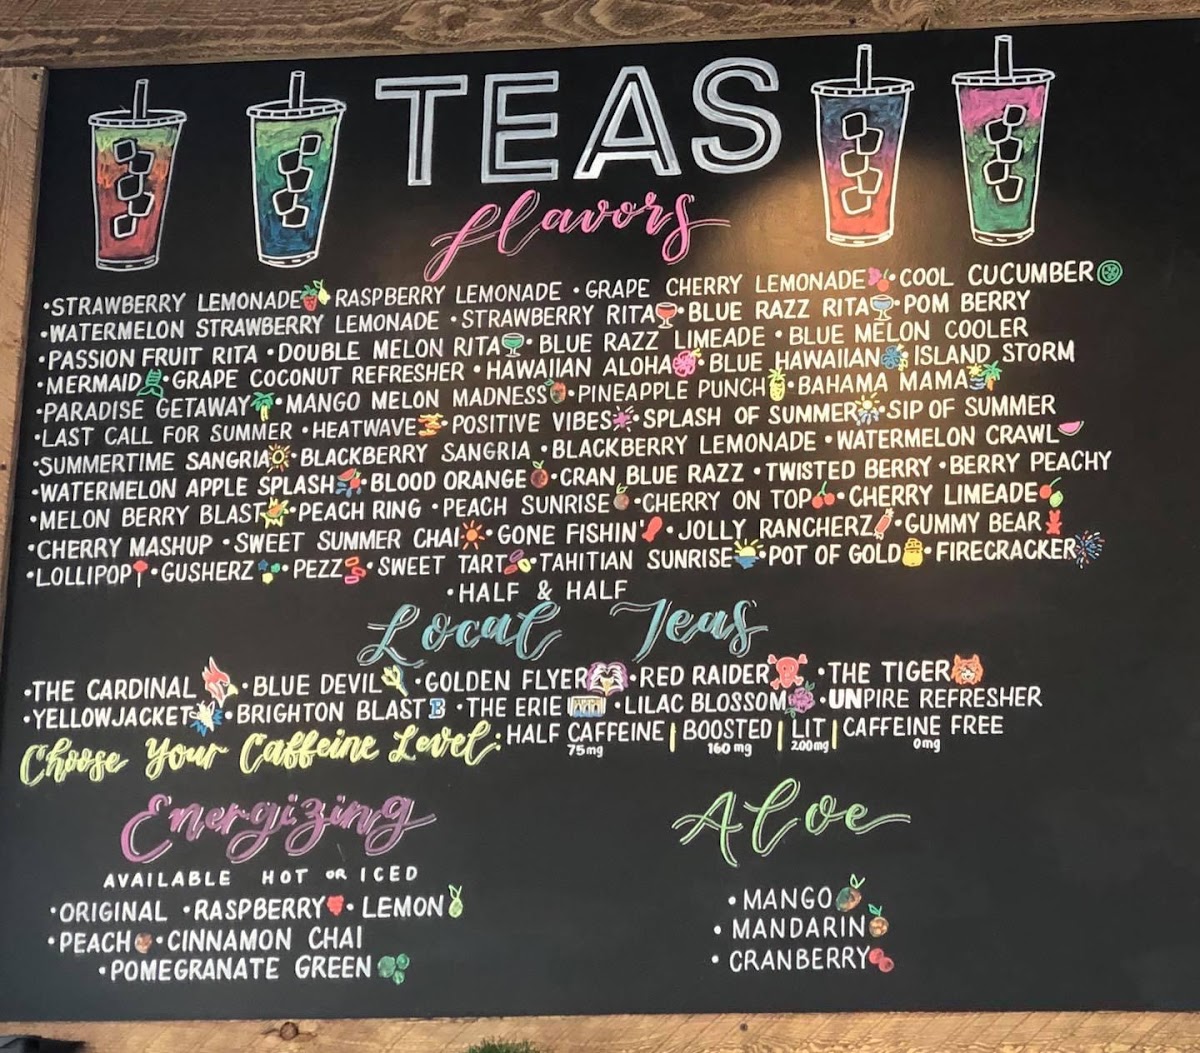 TEAS
flavors
•STRAWBERRY LEMONADE •RASPBERRY LEMONADE •GRAPE CHERRY LEMONADE •COOL CUCUMBER
•WATERMELON STRAWBERRY LEMONADE •STRAWBERRY RITA •BLUE RAZZ RITA •POM BERRY
•PASSION FRUIT RITA •DOUBLE MELON RITA •BLUE RAZZ LIMEADE •BLUE MELON COOLER
•MERMAID •GRAPE COCONUT REFRESHER •HAWAIIAN ALOHA •BLUE HAWAIIAN •ISLAND STORM
•PARADISE GETAWAY •MANGO MELON MADNESS •PINEAPPLE PUNCH •BAHAMA MAMA
•LAST CALL FOR SUMMER •HEATWAVE •POSITIVE VIBES •SPLASH OF SUMMER •SIP OF SUMMER
•SUMMERTIME SANGRIA •BLACKBERRY SANGRIA •BLACKBERRY LEMONADE •WATERMELON CRAWL
•WATERMELON APPLE SPLASH •BLOOD ORANGE •CRAN BLUE RAZZ •TWISTED BERRY •BERRY PEACHY
•MELON BERRY BLAST •PEACH RING •PEACH SUNRISE •CHERRY ON TOP •CHERRY LIMEADE
•CHERRY MASHUP •SWEET SUMMER CHAI •GONE FISHIN' •JOLLY RANCHERZ •GUMMY BEAR
•LOLLIPOP •GUSHERZ •PEZZ •SWEET TART •TAHITIAN SUNRISE •POT OF GOLD •FIRECRACKER
•HALF & HALF
Local Teas
•THE CARDINAL •BLUE DEVIL •GOLDEN FLYER •RED RAIDER •THE TIGER
•YELLOWJACKET •BRIGHTON BLAST B •THE ERIE •LILAC BLOSSOM •UNPIRE REFRESHER
Choose Your Caffeine Level: HALF CAFFEINE | BOOSTED | LIT | CAFFEINE FREE
75mg 160 mg 200mg 0mg
Energizing
AVAILABLE HOT or ICED
•ORIGINAL •RASPBERRY •LEMON
•PEACH •CINNAMON CHAI
•POMEGRANATE GREEN
Aloe
•MANGO
•MANDARIN
•CRANBERRY